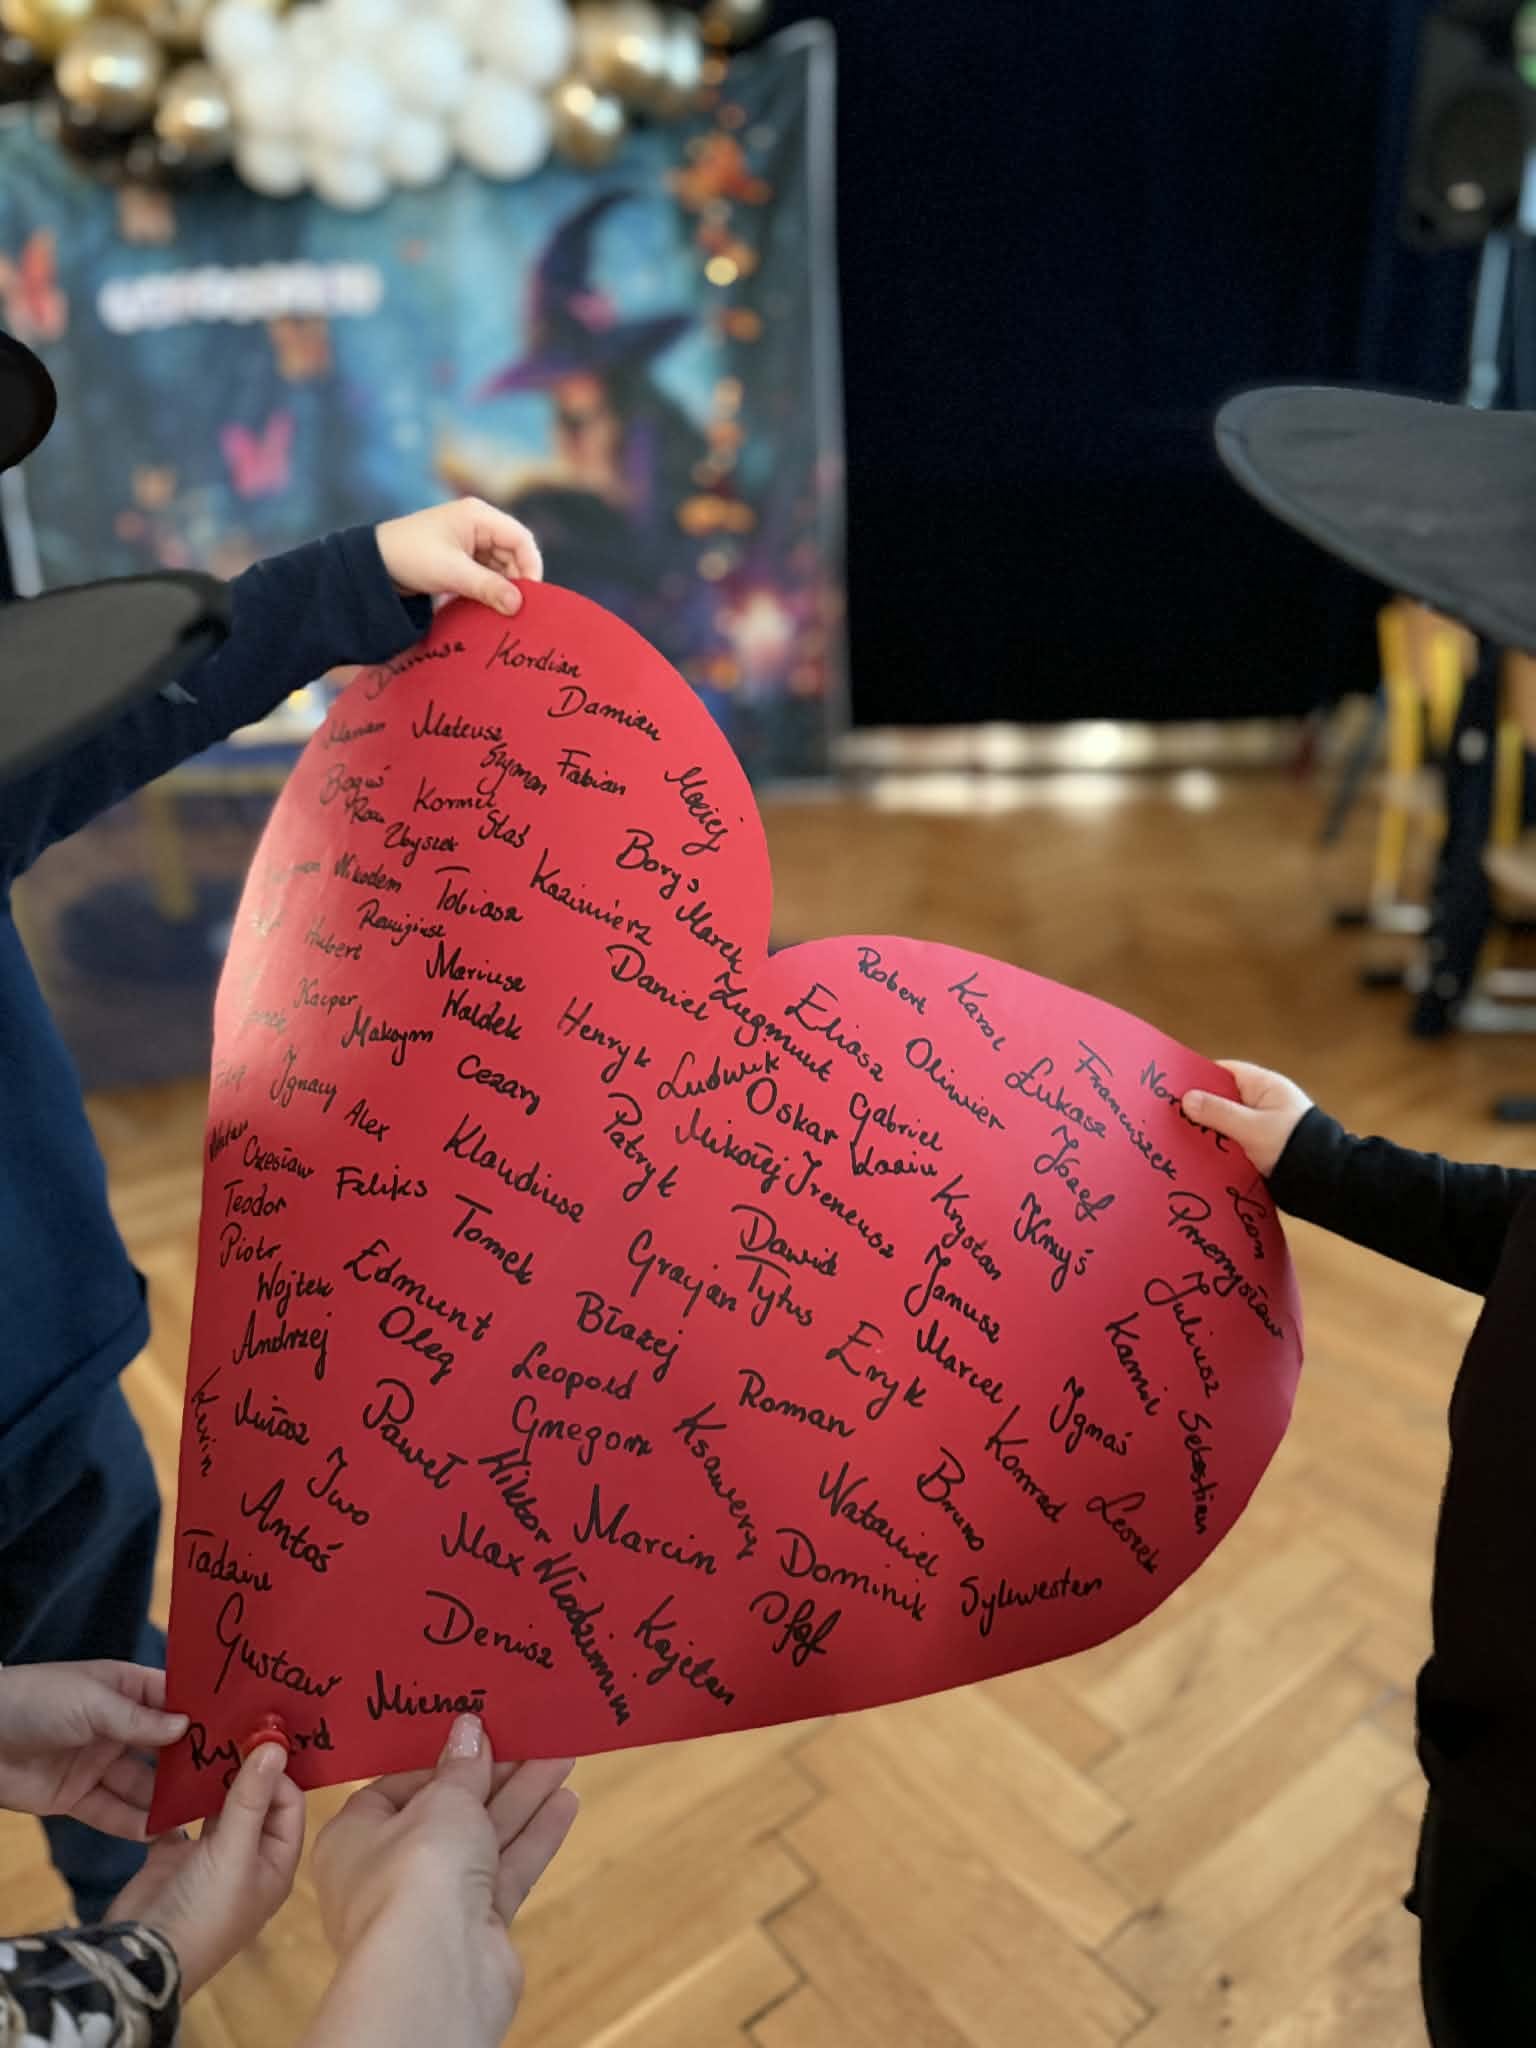 Dariusz Kordian
Damian
Marian Mateusz
Szymon Fabian Maciej
Boguś Kornel Staś
Zbyszek Borys
Nikodem Tobiasz Kazimierz Marek
Remigiusz
Hubert Mariusz Daniel Zygmunt Eliasz Robert Karol
Kacper Waldek Henryk Ludwik Gabriel Oliwier Łukasz Franciszek
Maksym Cezary Oskar
Ignacy Alex Patryk Mikołaj Ireneusz Krystan Józef Przemysław Leon
Czesław Klaudiusz Krzyś
Teodor Feliks Dawid Janusz Juliusz
Piotr Tomek Gracjan Tytus Kamil
Wojtek Edmunt Błażej Eryk Marcel Sebastian
Andrzej Oleg Leopold Roman Ignaś
Kevin Miłosz Paweł Gnegorz Ksawery Bruno Konrad Leszek
Iwo Wiktor Natawiel
Antoś Max Marcin Dominik Sylwester
Tadziu Włodzimierz Olaf
Gustaw Denisz Kajetan